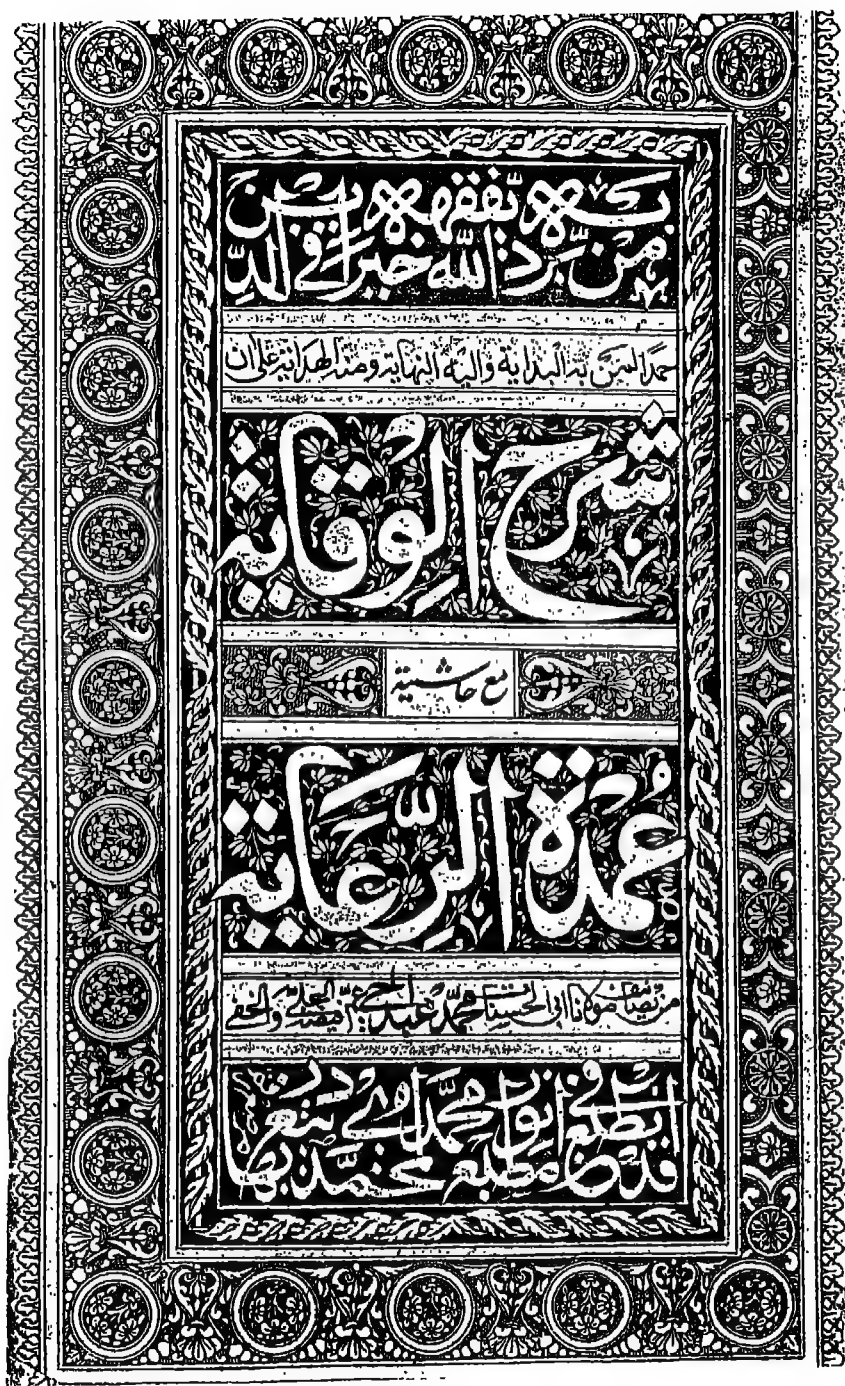 من يرد الله به خيرا يفقهه في الدين
حمدا لمن به البداية واليه النهاية ومنه الهداية على ان
شرح الوقاية
مع حاشية
عمدة الرعاية
من تصانيف مولانا ابى الحسنات محمد عبد الحى عم فيضه الجلى والخفى
قد انطبع في مطبع انوار محمدى